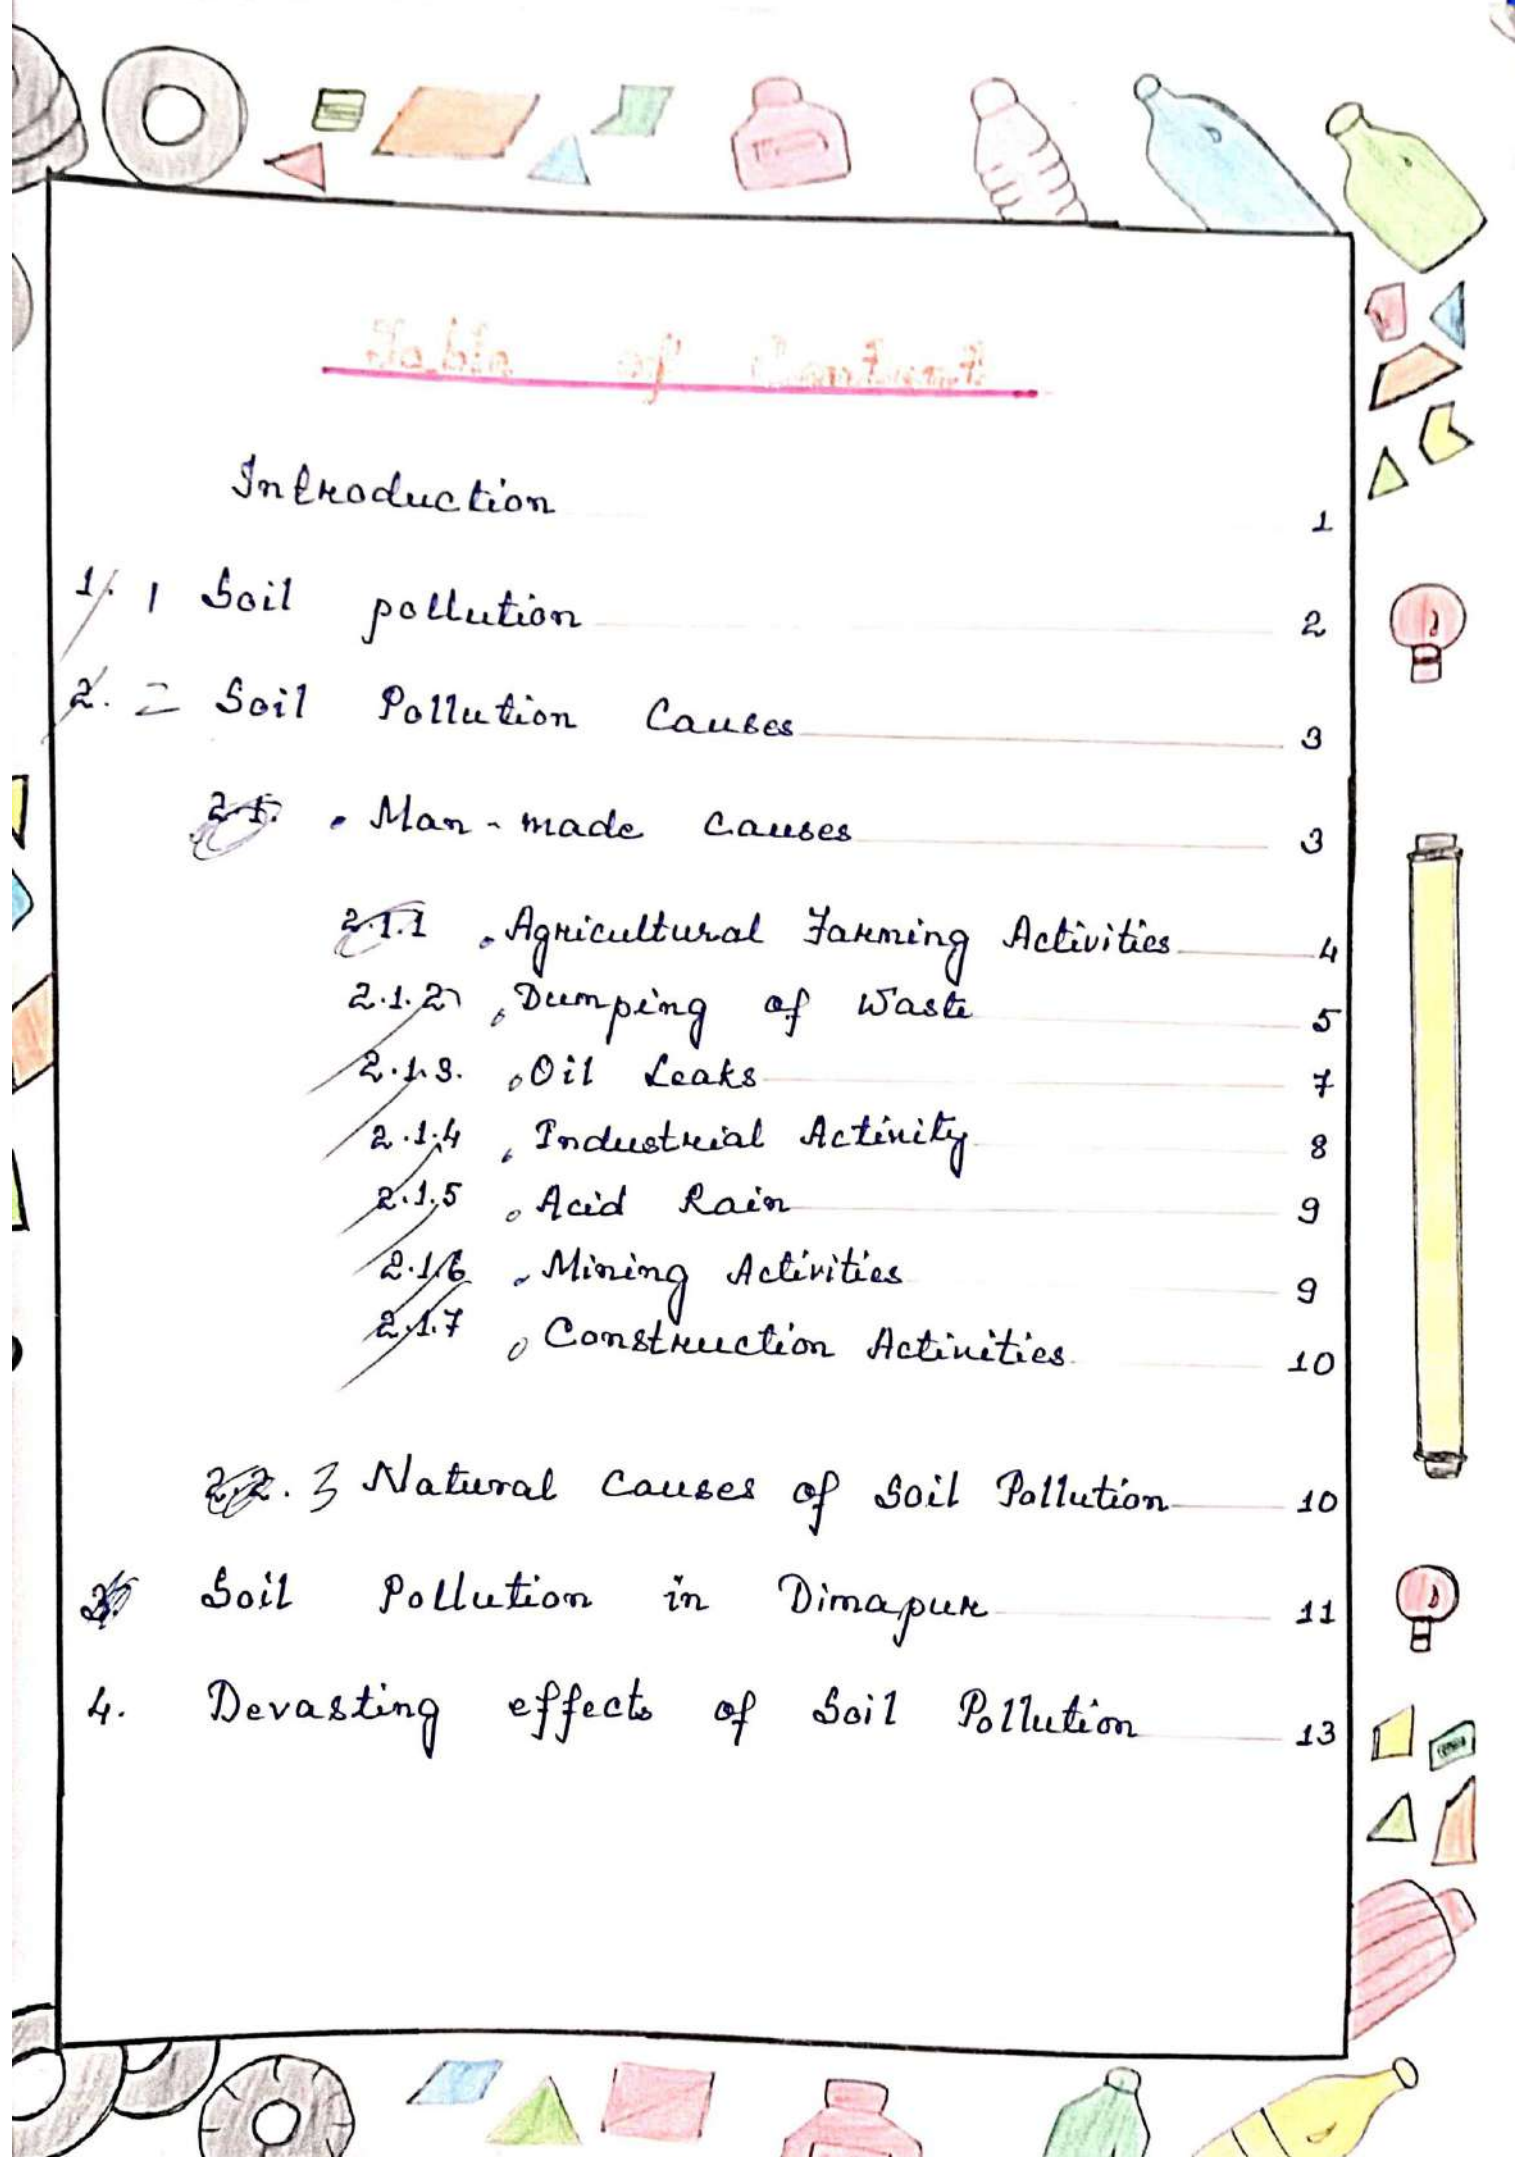 Table of Content
Introduction 1
1. 1 Soil pollution 2
2. 2 Soil Pollution Causes 3
2.1. • Man-made causes 3
2.1.1 • Agricultural Farming Activities 4
2.1.2 • Dumping of Waste 5
2.1.3. • Oil Leaks 7
2.1.4 • Industrial Activity 8
2.1.5 • Acid Rain 9
2.1.6 • Mining Activities 9
2.1.7 • Construction Activities 10
2.2. 3 Natural Causes of Soil Pollution 10
3. Soil Pollution in Dimapur 11
4. Devasting effects of Soil Pollution 13